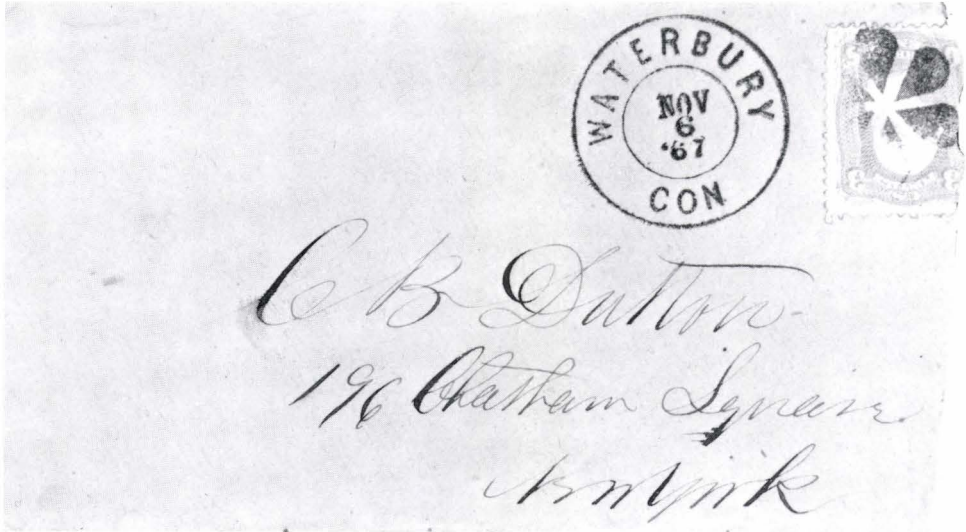 WATERBURY
NOV
6
'67
CON
C B Dutton
196 Chatham Square
New York